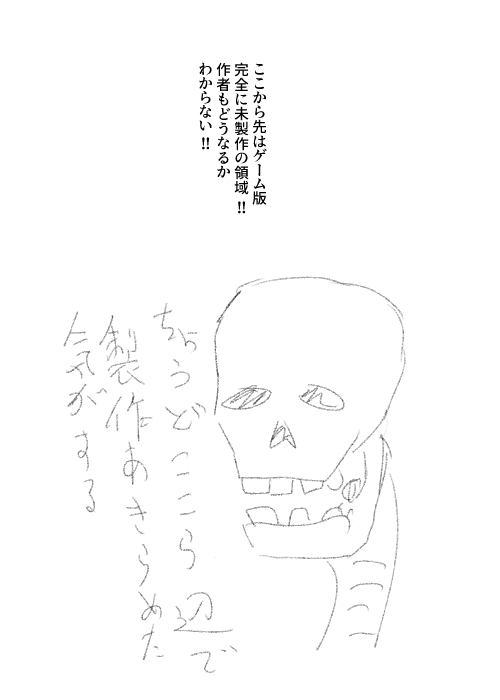 ここから先はゲーム版
完全に未製作の領域!!
作者もどうなるか
わからない!!
ちょうどここら辺で
製作あきらめた
気がする